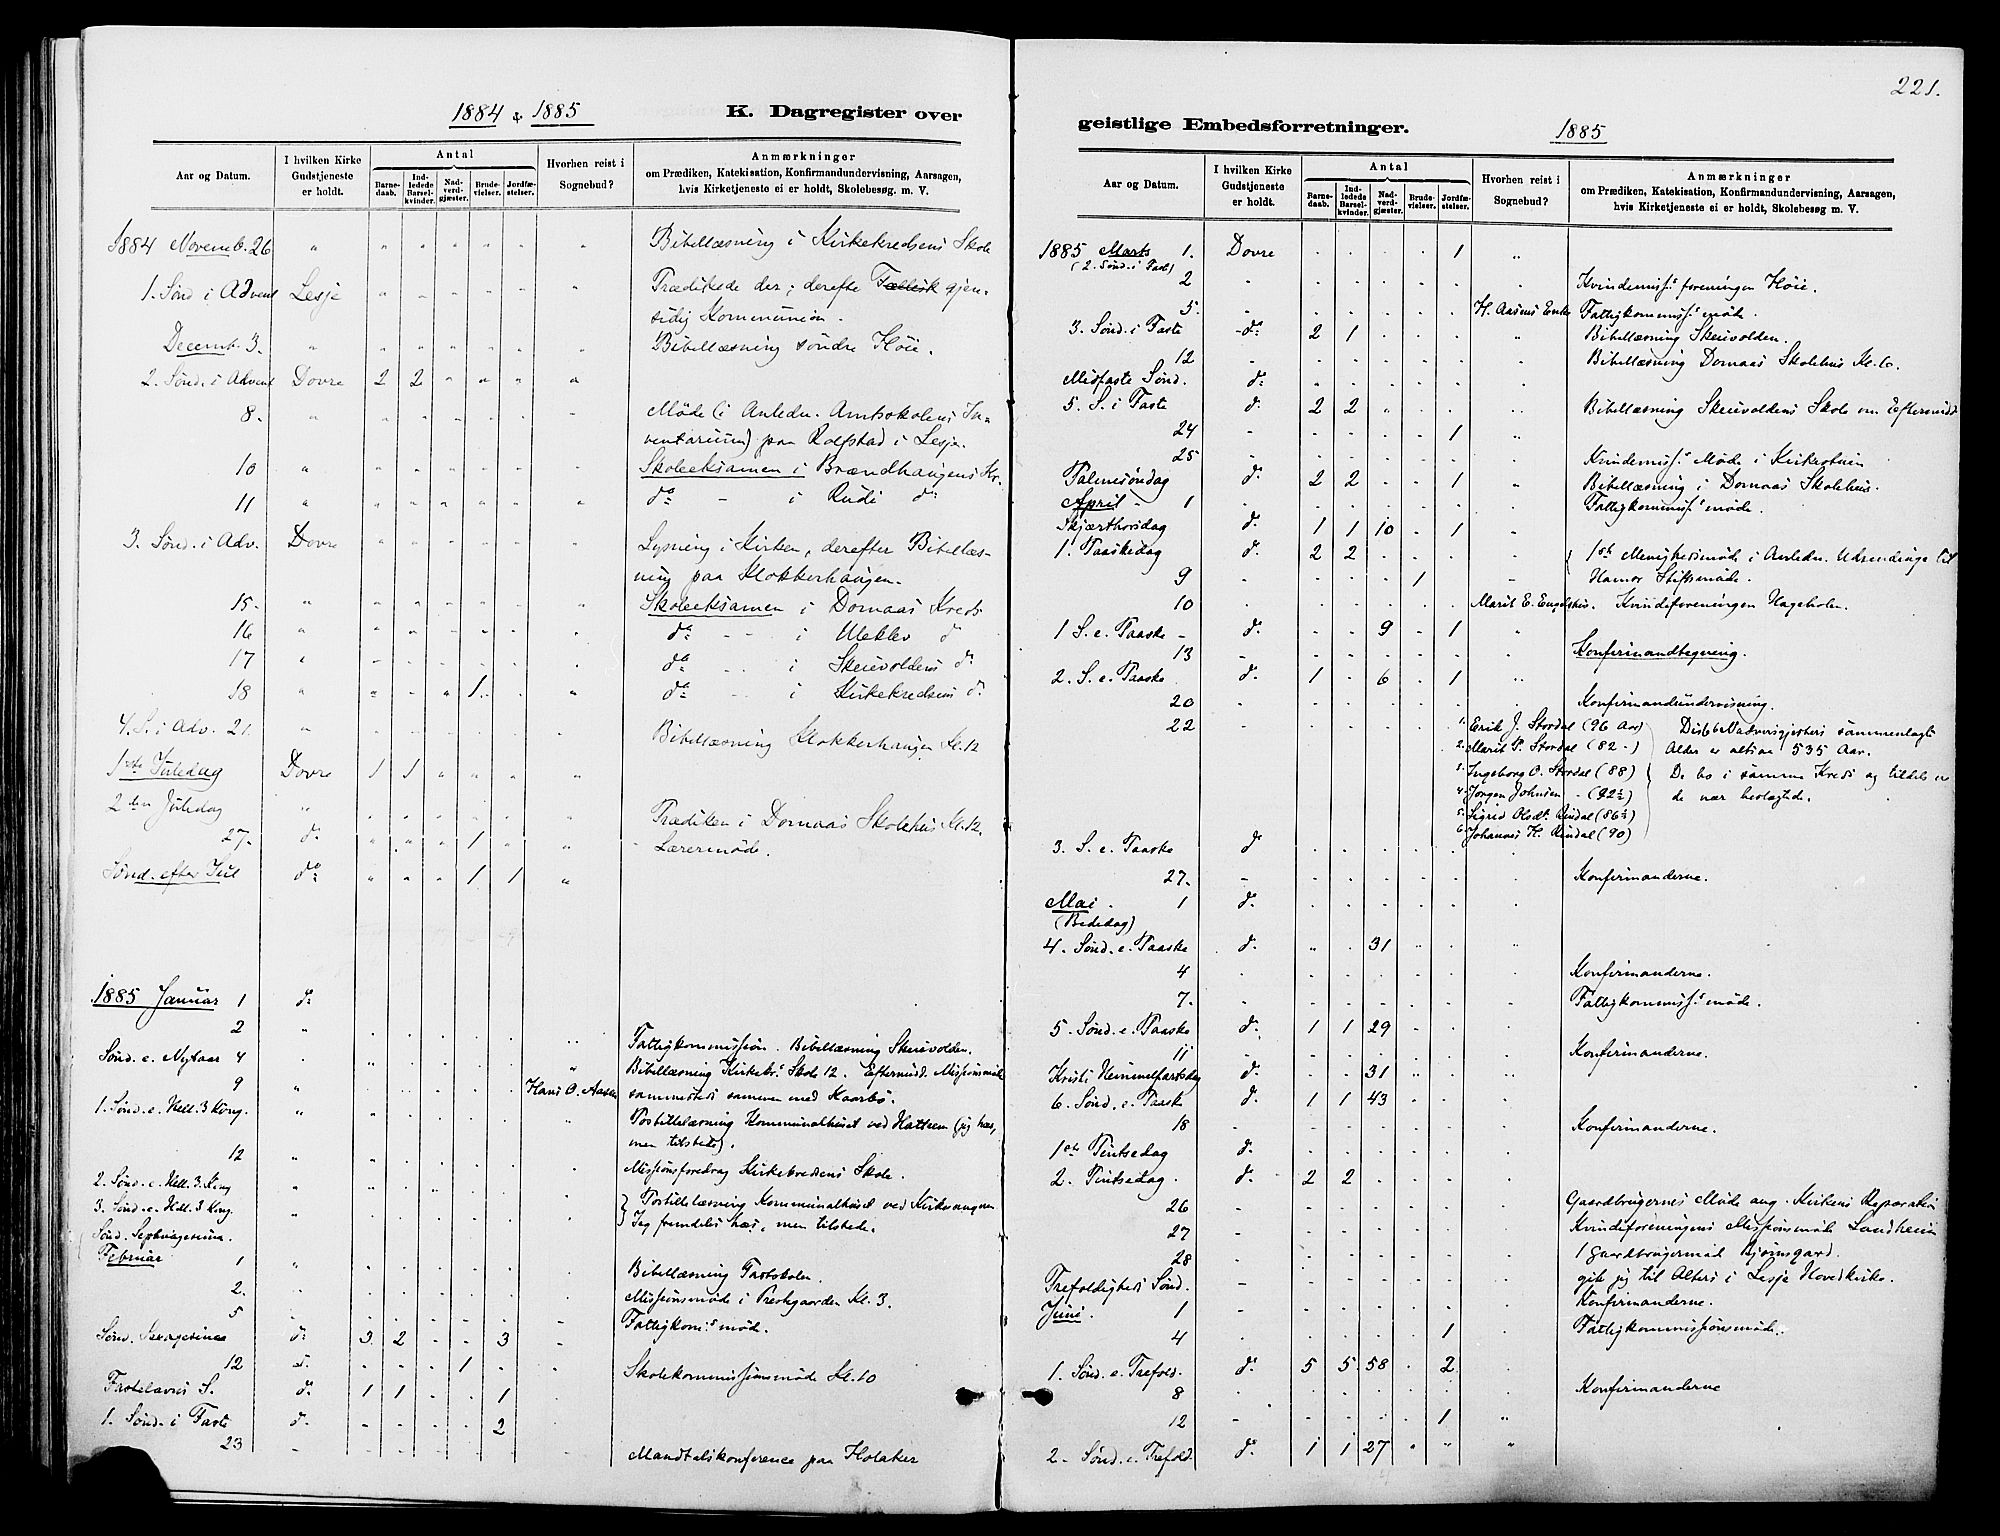 221.
1884 & 1885 K. Dagregister over
geistlige Embedsforretninger. 1885
Aar og Datum. I hvilken Kirke Gudstjeneste er holdt. Antal Hvorhen reist i Sognebud? Anmærkninger
Barnedaab. Indledede Barselkvinder. Nadverdgjæster. Brudevielser. Jordfæstelser.
om Prædiken, Katekisation, Konfirmandundervisning, Aarsagen,
hvis Kirketjeneste ei er holdt, Skolebesøg m. V.
1884 Novemb. 26 " " " " " " " Bibellæsning i Kirkekredsens Skole
1. Sønd i Advent Lesje " " " " " " Prædikede der; derefte gjen-
sidig Kommunion.
Decemb. 3. " " " " " " " Bibellæsning søndre Høie.
2. Sønd. i Advent Dovre 2 2 " " " "
8. " " " " " " " Møde (i Anledn. Amtskolens In-
ventarium) paa Rolfstad i Lesje.
10 " " " " " " " Skoleeksamen i Brændhaugens Kr.
11 " " " " " " " do - i Rudi do
3. Sønd. i Adv. Dovre " " " " " " Lysning i Kirken, derefter Bibellæs-
ning paa Klokkerhaugen.
15. " " " " " " " Skoleeksamen i Dornaas Kreds
16 " " " " " " " do - - i Uleklev do
17 " " " " " " " do - - i Skeievoldens do
18 " " " " 1. " " do - i Kirkekredsens do
4. S. i Adv. 21. " Bibellæsning Klokkerhaugen Kl. 12
1ste Juledag Dovre 1 1 " " " "
2den Juledag " " " " " " " Prædiken i Dornaas Skolehus Kl. 12.
27. do " " " 1 " " Lærermøde.
Sønd. efter Jul do " " " 1 1 "
1885 Januar 1 do
2 " Fattigkommission. Bibellæsning Skeievolden.
Sønd. e. Nytaar 4 Bibellæsning Kirkekr. Skole 12. Eftermid. Missionsmøde
9 " Hans O. Aasen sammesteds sammen med Kaarbø.
1. Sønd. e. Hell. 3 Kong. " Postillelæsning Kommunalhuset ved Hattrem (jeg hæs,
men tilstede).
12 " Missionsforedrag Kirkekredsens Skole.
2. Sønd. e. Hell. 3. Kong "
3. Sønd. e. Hell. 3 Kong. " Postillelæsning Kommunalhuset ved Kirkevangen
Sønd. Septuagesima. Jeg fremdeles hæs, men tilstede.
Februar 1 " Bibellæsning Fastskolen.
2. " Missionsmøde i Prestgaarden Kl. 3.
5 Fattigkom.s møde.
Sønd. Sexagesima do 3 2 . . 3
12 do . . . 1 . Skolekommissionsmøde Kl. 10
Fastelavns S. do 1 1 . . 1
1. Sønd. i Faste do . . . . 2
23 - Mandtalskonference paa Holaker
Aar og Datum. I hvilken Kirke Gudstjeneste er holdt. Antal Hvorhen reist i Sognebud? Anmærkninger
Barnedaab. Indledede Barselkvinder. Nadverdgjæster. Brudevielser. Jordfæstelser.
om Prædiken, Katekisation, Konfirmandundervisning, Aarsagen,
hvis Kirketjeneste ei er holdt, Skolebesøg m. V.
1885 Marts 1. Dovre . . . . 1 "
(2. Sønd. i Fast)
2 Kvindemiss.s foreningen Høie.
5. H. Aasens Enke Fattigkommiss.s møde.
3. Sønd. i Faste do 2 1 . . . " Bibellæsning Skeievolden.
12 - Bibellæsning Dornaas Skolehus Kl. 10.
Midfaste Sønd. do
5. S. i Faste do 2 2 " . . " Bibellæsning Skeievoldens Skole om Eftermidd.
24 - . . . . 1 "
25 - Kvindemiss.s Møde i Kirkestuen
Palmesøndag do 2 2 . . 1 " Bibellæsning i Dornaas Skolehus.
April 1 Fattigkommiss.s møde.
Skjærthorsdag do 1 1 10 . 1
1. Paaskedag do 2 2 . . . 1ste Menighedsmøde i Anledn. Udsendinge til
9 - . . . 1 . - Hamar Stiftsmøde.
10 - Marit E. Engelshus. Kvindeforeningen Hageholen.
1 S. e. Paaske - do . . 9 . 1 "
13 - Konfirmandtegning.
2. S. e. Paaske do 1 . 6 . 1 "
20 Konfirmandundervisning.
22 1. Erik J. Stordal (96 Aar) Disse 6 Nadversgjæsters sammenlagte
2. Marit P. Stordal (82 -) Alder er altsaa 535 Aar.
3. Ingeborg O. Stordal (88) De bo i samme Kreds og tildels er
4. Jørgen Johnsen - (92½) de nær beslægtede.
5. Sigrid Olsdt. Rindal (86½)
6. Johannes H. Rindal (90)
3. S. e. Paaske do
27. - Konfirmanderne.
Mai 1 do
(Bededag)
4. Sønd. e. Paaske do " . 31
4 Konfirmanderne.
7. - Fattigkommiss.s møde.
5. Sønd. e. Paaske do 1 1 29
11 - Konfirmanderne.
Kristi Himmelfartsdag do . . 31
6. Sønd. e. Paaske do 1 1 43
18 Konfirmanderne.
1ste Pintsedag do
2. Pintsedag. do 2 2
26 Gaardbrugernes Møde ang. Kirkens Reparation
27 Kvindeforeningens Missionsmøde Landheim
28 1 Gaardbrugermød Bjørnsgard.
Trefoldigheds Sønd. - gik jeg til Alters i Lesje Hovedkirke.
Juni 1 - Konfirmanderne.
4 - . . . . 1 Fattigkommissionsmøde.
1. Sønd. e. Trefold. do 5 5 58 . 2
8 Konfirmanderne
12 - . . . . 1 "
2. Sønd. e. Trefold. do 1 1 27 " " "